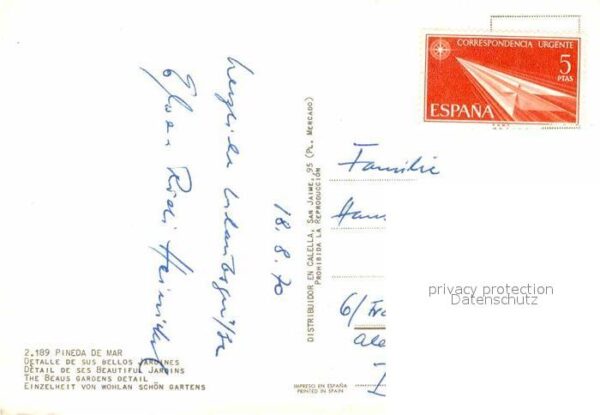 CORRESPONDENCIA URGENTE
5
PTAS
ESPAÑA
18.8.70
herzliche Urlaubsgrüße
Familie
Hans
6/Fra
privacy protection
Datenschutz
DISTRIBUIDOR EN CALELLA, SAN JAIME, 95 (PL. MERCADO)
PROHIBIDA LA REPRODUCCIÓN
2.189 PINEDA DE MAR
DETALLE DE SUS BELLOS JARDINES
DÉTAIL DE SES BEAUTIFUL JARDINS
THE BEAUS GARDENS DETAIL
EINZELHEIT VON WOHLAN SCHÖN GARTENS
IMPRESO EN ESPAÑA
PRINTED IN SPAIN